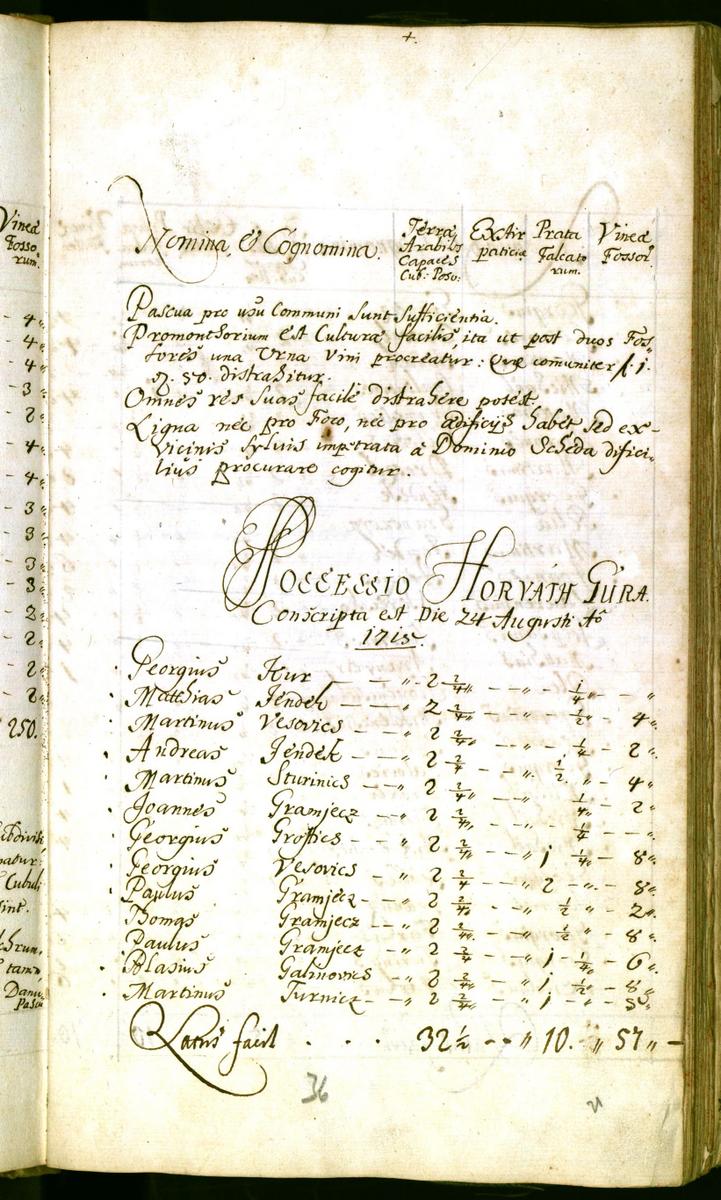 +.
Nomina, & Cognomina.
Terræ Arabiles Capaces Cub: Poson:
Extirpaticiæ
Prata Falcatorum.
Vineæ Fossor.
Pascua pro usu Communi sunt sufficientia.
Promonthorium est Culturæ facilis, ita ut post duos Fos-
sores una Urna Vini procreatur: quæ comuniter f. 1.
50. distrahitur.
Omnes res suas facile distrahere potest.
Ligna nec pro Foco, nec pro ædificijs habet sed ex
Vicinis Sylvis impetrata a Dominio Scheda dific-
lius procurare cogitur.
Possessio Horváth Gúra.
Conscripta est Die 24 Augusti Aō
1715.
Georgius Kur — „ 2 2/4 „ — „ 1/4 „ — „
Matthias Jendek — „ 2 2/4 „ — „ 1/2 „ 4 „
Martinus Vesovics — „ 2 2/4 „ — „ 1/4 „ 2 „
Andreas Jendek — „ 2 2/4 — „ 1/2 „ 4 „
Martinus Sturinics — „ 2 2/4 „ — „ 1/4 „ 2 „
Joannes Gramjecz — „ 2 2/4 „ — „ 1/4 — „
Georgius — „ 2 2/4 „ — „ 1 1/4 „ 8 „
Georgius Vesovics — „ 2 2/4 — „ 2 — „ 8 „
Paulus Gramjecz — „ 2 2/4 „ — „ 1/2 „ 2 „
Thomas Gramjecz — „ 2 2/4 „ — „ 1/2 „ 8 „
Paulus Gramjecz — „ 2 2/4 — „ 1 1/4 „ 6 „
Blasius Galinovics — „ 2 2/4 „ — „ 1 1/2 „ 8 „
Martinus Turnicz — „ 2 2/4 „ — „ 1 „ — „ 5 „
Latus facit . . . 32 1/2 — „ 10. „ 57 „ —
36
Vineæ
Fossorum.
- 4 „
- 4 „
- 4 „
- 3 „
- 2 „
- 4 „
- 4 „
- 3 „
- 3 „
- 3 „
- 3 „
- 2 „
- 2 „
- 2 „
- 2 „
250.